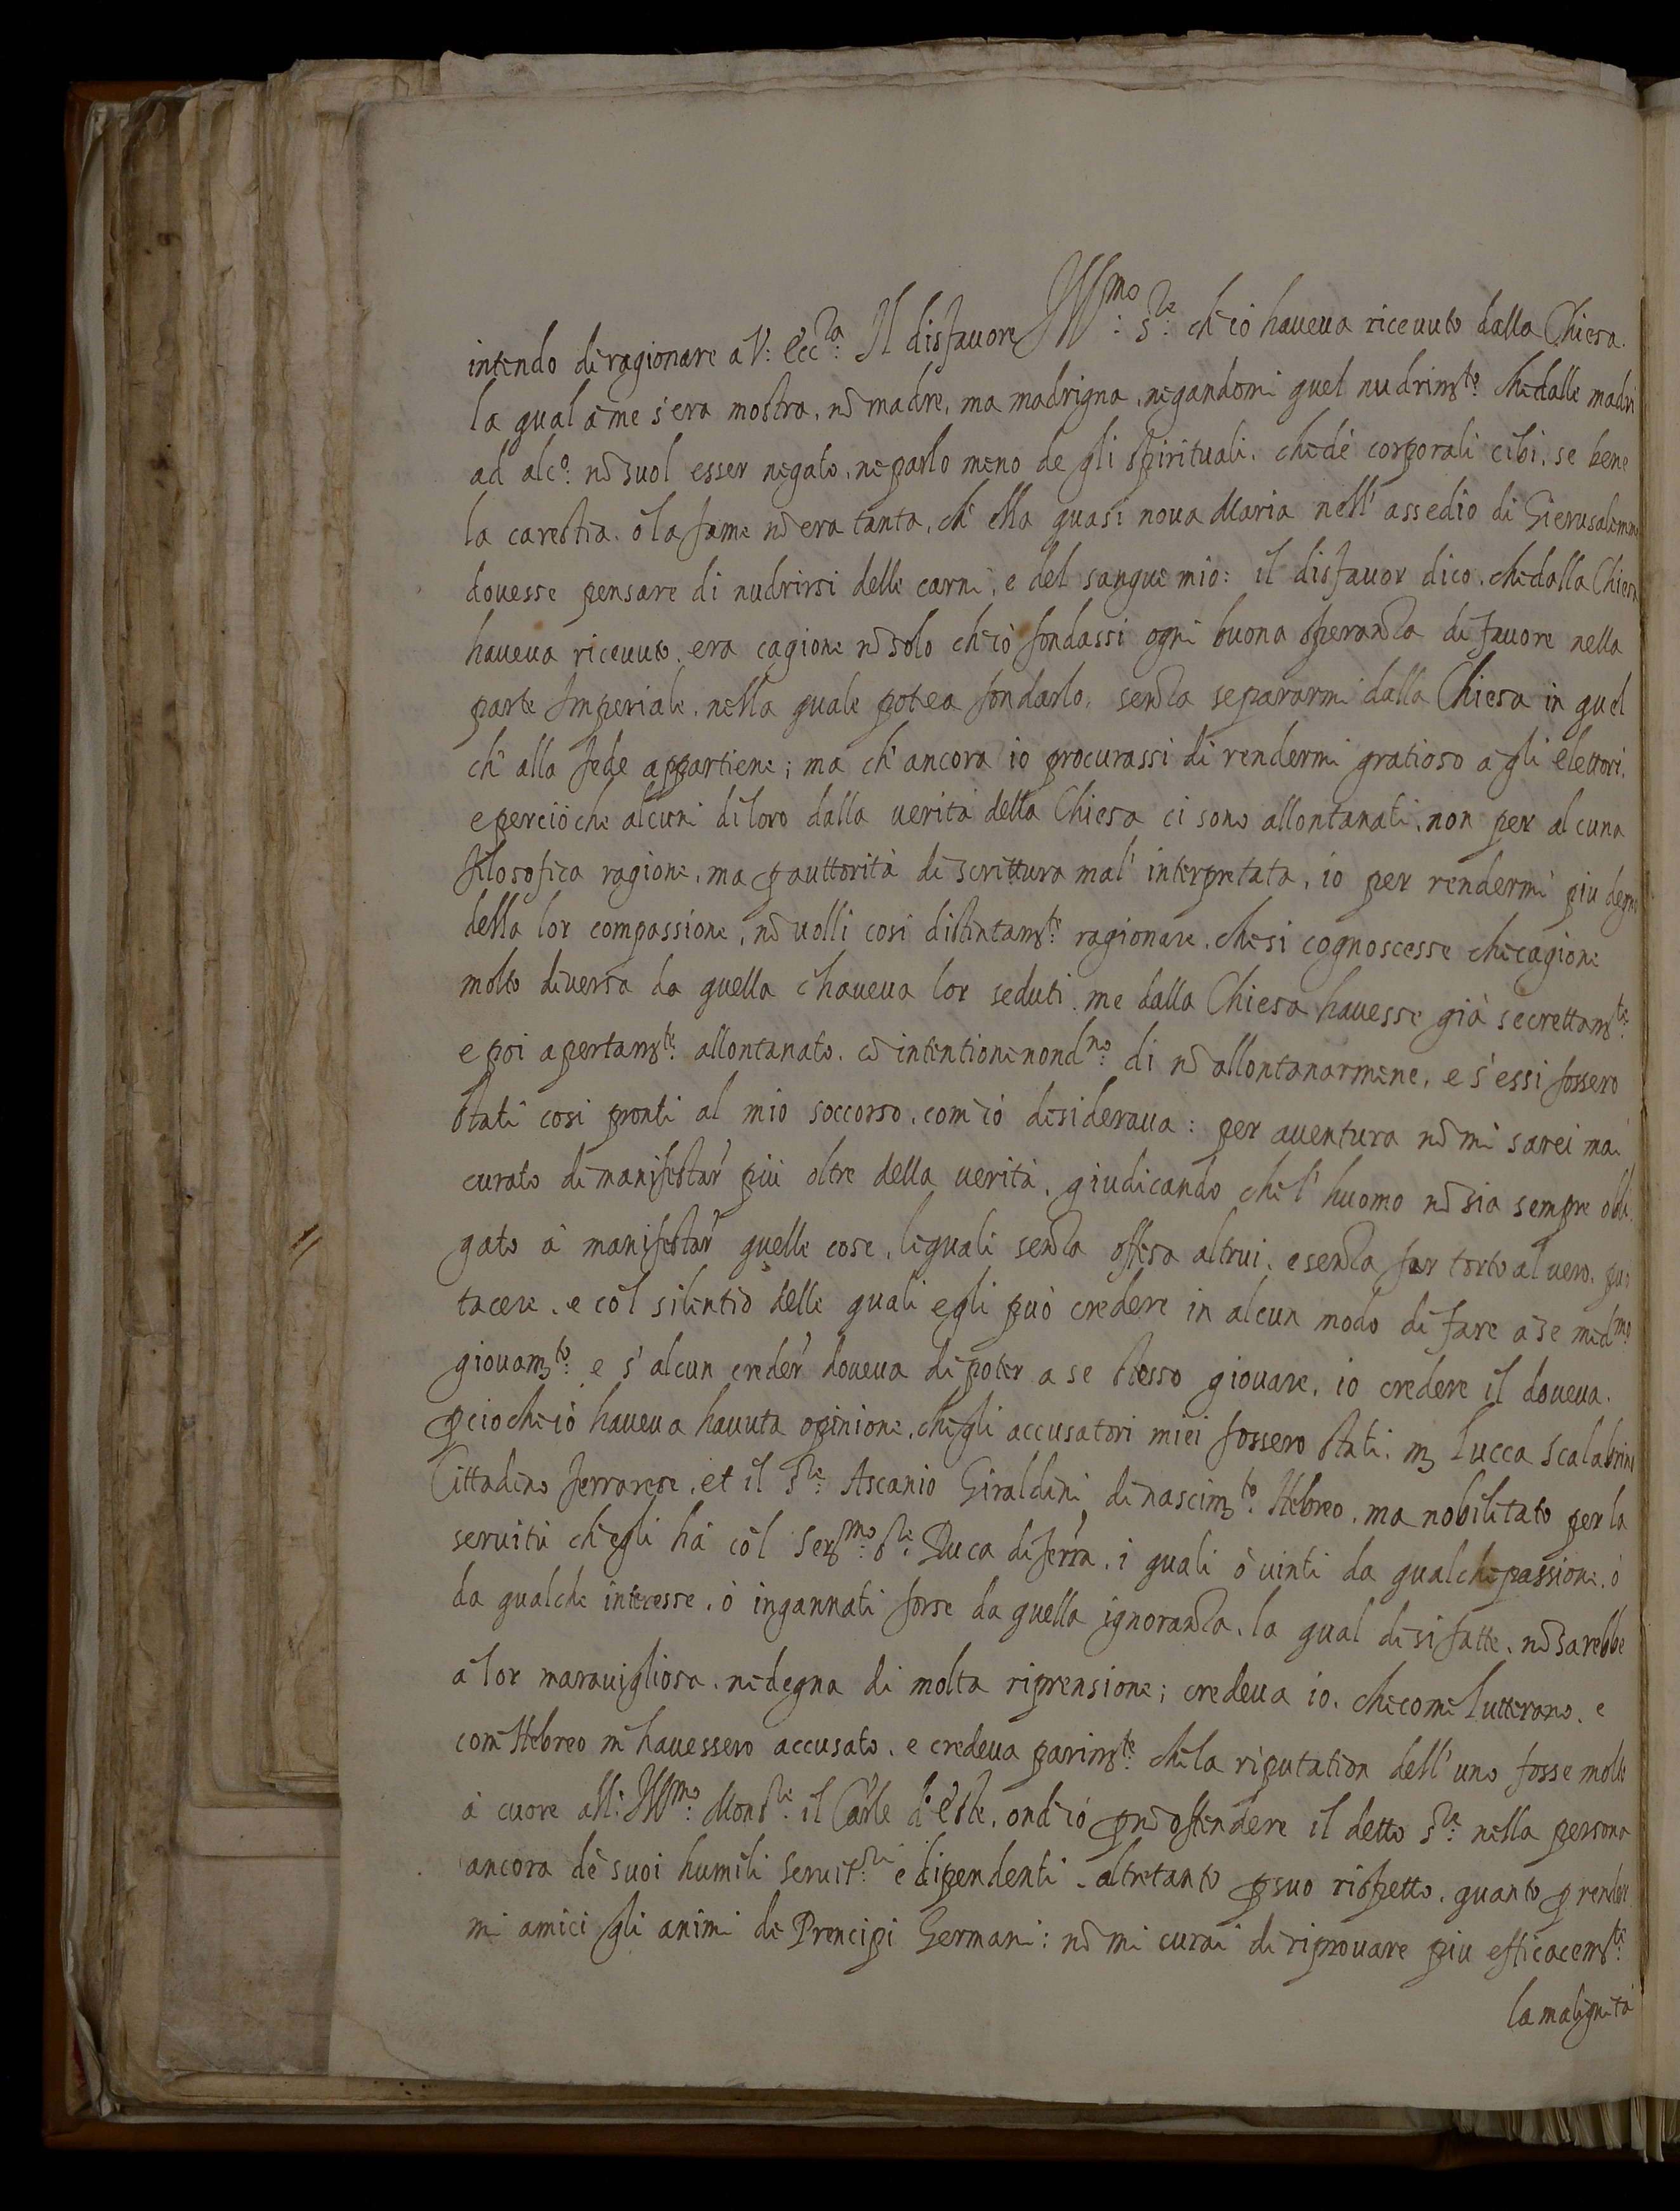 intendo di ragionare a V: Ecc.za: Il disfavore Ill.mo: S.re: ch'io haveva ricevuto dalla Chiesa.
la qual à me s'era mostra, nõ madre, ma madrigna, negandomi quel nudrim.to: che dalle madri
ad alc.o: nõ suol esser negato, ne parlo meno de gli spirituali, che dè corporali cibi, se bene
la carestia, ò la fame nõ era tanta, ch'ella quasi nova Maria nell'assedio di Gierusalemme
dovesse pensare di nudrirsi delle carni, e del sangue mio: il disfavor dico, che dalla Chiesa
haveva ricevuto, era cagione nõ solo ch'iò fondassi ogni buona speranza di favore nella
parte Imperiale, nella quale potea fondarlo, senza separarmi dalla Chiesa in quel
ch'alla fede appartiene; ma ch'ancora io procurassi di rendermi gratioso à gli elettori,
e perciò che alcuni di loro dalla verità della Chiesa ci sono allontanati, non per alcuna
filosofica ragione, ma p auttorità di scrittura mal'interpretata, io per rendermi piu degno
della lor compassione, nõ volli cosi distintam.te: ragionare, che si cognoscesse che cagione
molto diversa da quella c'haveva lor seduti, me dalla Chiesa havesse già secrettam.te:
e poi apertam.te: allontanato, cõ intentione nond.no: di nõ allontanarmene, e s'essi fossero
stati cosi pronti al mio soccorso, com'iò desiderava: per aventura nõ mi sarei mai
curato di manifestar' più oltre della verità, giudicando che l'huomo nõ sia sempre obli
gato à manifestar' quelle cose, le quali senza offesa altrui, e senza far torto al vero, può
tacere, e cò'l silentio delle quali egli può credere in alcun modo di fare a se med.mo
giovam.to: e s'alcun creder' doveva di poter a se stesso giovare, io credere il doveva.
pcioche iò haveva havuta opinione, che gli accusatori miei fossero stati, m Lucca Scalabrini
Cittadino ferrarese, et il S.re: Ascanio Giraldini di nascim.to: Hebreo, ma nobilitato per la
servitù ch'egli hà cò'l Ser.mo: S.re: Duca di ferr'a, i quali ò vinti da qualche passione, ò
da qualche interesse, ò ingannati forse da quella ignoranza, la qual di si fatte, nõ sarebbe
à lor maravigliosa, ne degna di molta riprensione; credeva io, che come Lutterano, e
com'Hebreo m'havessero accusato, e credeva parim.te: che la riputation dell'uno fosse molto
à cuore all: Ill.mo: Mons.re: il Car'le d'Este, ond'iò p nõ offendere il detto S.re: nella persona
ancora dè suoi humili servit.ri: è dipendenti, altretanto p suo rispetto, quanto p render
mi amici gli animi de Prencipi Germani: nõ mi curai di riprovare piu efficacem.te:
la malignità